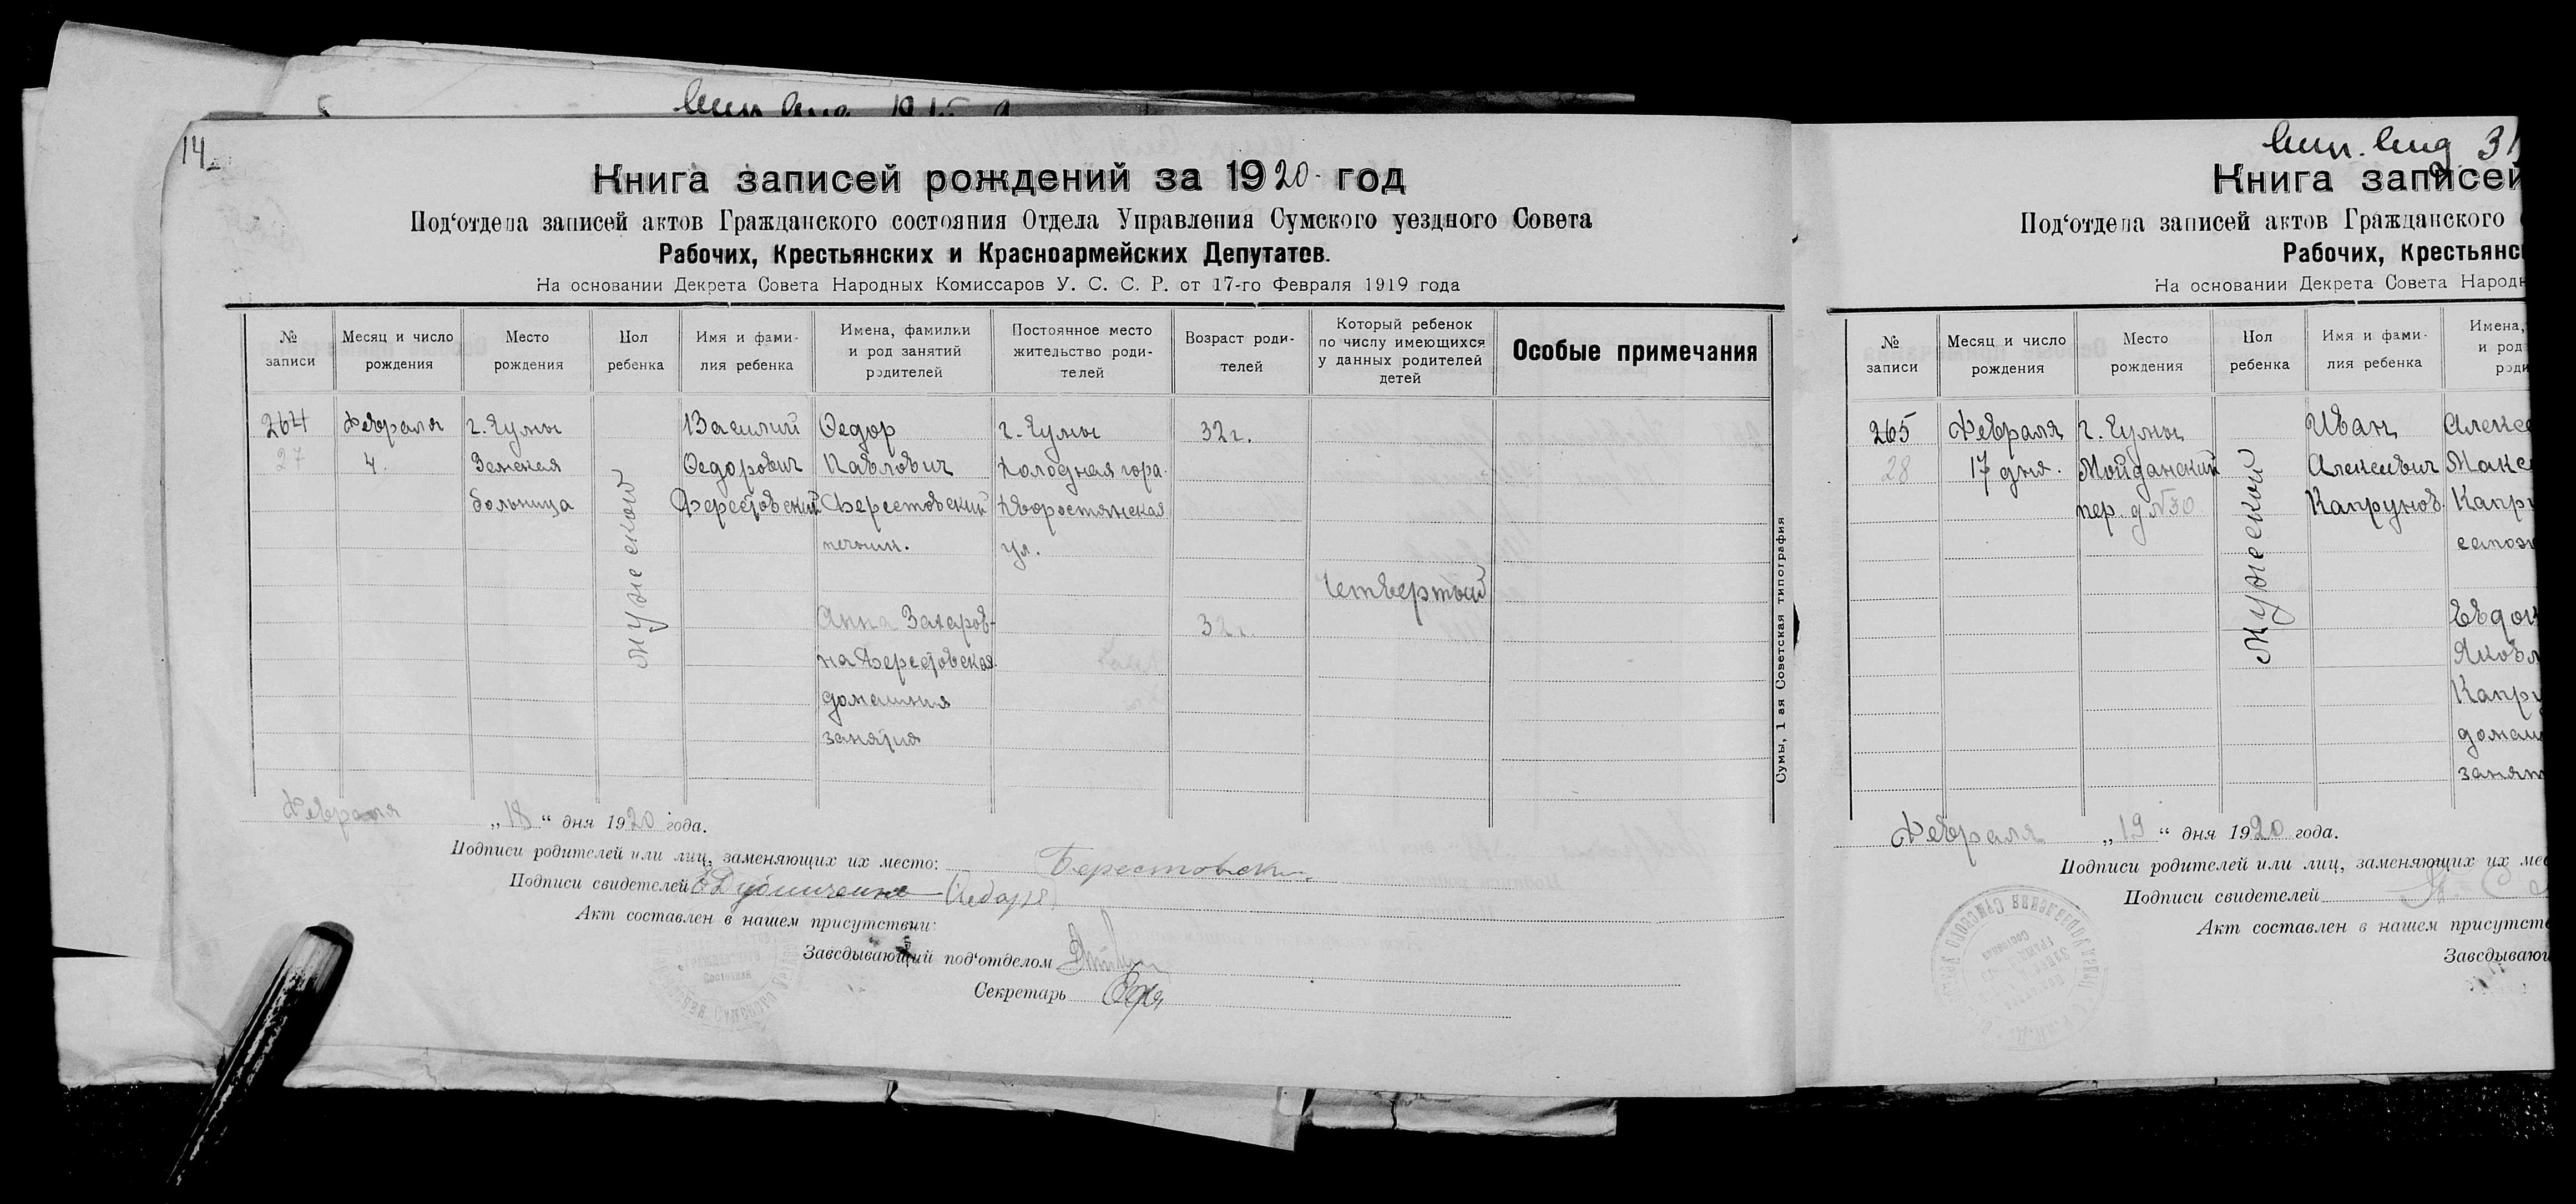 14
Книга записей рождений за 1920 год
Под‘отдела записей актов Гражданского состояния Отдела Управления Сумского уездного Совета
Рабочих, Крестьянских и Красноармейских Депутатов.
На основании Декрета Совета Народных Комиссаров У. С. С. Р. от 17-го Февраля 1919 года
№ записи
Месяц и число рождения
Место рождения
Пол ребенка
Имя и фами-
лия ребенка
Имена, фамилии
и род занятий
родителей
Постоянное место
жительство роди-
телей
Возраст роди-
телей
Который ребенок
по числу имеющихся
у данных родителей
детей
Особые примечания
264
27
Февраля
4.
г. Сумы
Земская
больница
Мужеской
Василий
Федорович
Берестовский
Федор
Павлович
Берестовский
печник.
Анна Захаров-
на Берестовская
домашния
занятия
г. Сумы
Холодная гора
Дворянская
ул.
32 г.
32 г.
Четвертый
Сумы, 1 ая Советская типография
Февраля „18“ дня 1920 года.
Подписи родителей или лиц, заменяющих их место:
Подписи свидетелей
Акт составлен в нашем присутствии:
Заведывающий под‘отделом
Секретарь
Книга записей
Под‘отдела записей актов Гражданского
Рабочих, Крестьянс
На основании Декрета Совета Народн
№ записи
Месяц и число рождения
Место рождения
Пол ребенка
Имя и фами-
лия ребенка
Имена,
и род
роди
265
28
Февраля
17 дня.
г. Сумы
Мойданский
пер. д №30
Мужеской
Иван
Алексеевич
Капрунов.
Алексе
Макс
Капру
сапож
Евдок
Яковл
Капру
домаш
занят
Февраля „19“ дня 1920 года.
Подписи родителей или лиц, заменяющих их мес
Подписи свидетелей
Акт составлен в нашем присутств
Заведываю